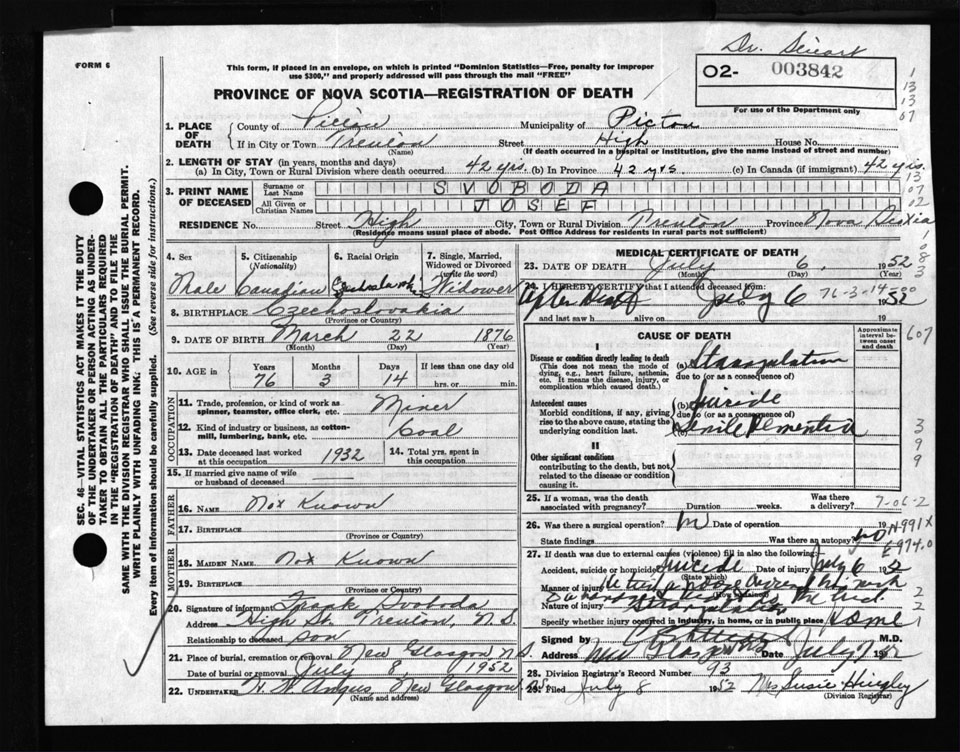 Dr.
FORM 6
This form, if placed in an envelope, on which is printed "Dominion Statistics—Free, penalty for improper
use $300," and properly addressed will pass through the mail "FREE"
02- 003842
For use of the Department only
1
13
13
07
PROVINCE OF NOVA SCOTIA—REGISTRATION OF DEATH
1. PLACE OF DEATH
County of Pictou Municipality of Pictou
If in City or Town Trenton (Name) Street High House No.
(If death occurred in a hospital or institution, give the name instead of street and number)
2. LENGTH OF STAY (in years, months and days)
(a) In City, Town or Rural Division where death occurred. 42 yrs. (b) In Province 42 yrs (c) In Canada (if immigrant) 42 yrs.
13
07
02
3. PRINT NAME OF DECEASED
Surname or Last Name SVOBODA
All Given or Christian Names JOSEF
RESIDENCE No. Street High City, Town or Rural Division Trenton Province Nova Scotia
(Residence means usual place of abode. Post Office Address for residents in rural parts not sufficient)
1
0
8
3
4. Sex
Male
5. Citizenship (Nationality)
Canadian
6. Racial Origin
7. Single, Married, Widowed or Divorced (write the word)
Widower
8. BIRTHPLACE Czechoslovakia
(Province or Country)
9. DATE OF BIRTH March 22 1876
(Month) (Day) (Year)
10. AGE in
Years Months Days If less than one day old
76 3 14 hrs. or min.
OCCUPATION
11. Trade, profession, or kind of work as spinner, teamster, office clerk, etc. Miner
12. Kind of industry or business, as cotton-mill, lumbering, bank, etc. Coal
13. Date deceased last worked at this occupation 1932
14. Total yrs. spent in this occupation
15. If married give name of wife or husband of deceased
FATHER
16. NAME Not Known
17. BIRTHPLACE
(Province or Country)
MOTHER
18. MAIDEN NAME Not Known
19. BIRTHPLACE
(Province or Country)
20. Signature of informant Frank Svoboda
Address High St. Trenton, N.S.
Relationship to deceased son
21. Place of burial, cremation or removal New Glasgow N.S.
Date of burial or removal July 8 1952
22. UNDERTAKER H. W. Angus, New Glasgow N.S.
(Name and address)
MEDICAL CERTIFICATE OF DEATH
23. DATE OF DEATH July 6, 1952
(Month) (Day) (Year)
24. I HEREBY CERTIFY that I attended deceased from:
After Death July 6 1952
76-3-14-00
and last saw h alive on 19
CAUSE OF DEATH
Approximate interval between onset and death
607
I
Disease or condition directly leading to death
(This does not mean the mode of dying, e.g., heart failure, asthenia, etc. It means the disease, injury, or complication which caused death.)
(a) Strangulation
due to (or as a consequence of)
Antecedent causes
Morbid conditions, if any, giving rise to the above cause, stating the underlying condition last.
(b) Suicide
due to (or as a consequence of)
(c) Senile Dementia
3
9
9
II
Other significant conditions
contributing to the death, but not related to the disease or condition causing it.
25. If a woman, was the death associated with pregnancy? Duration weeks. Was there a delivery?
7-06-2
26. Was there a surgical operation? Date of operation 19
State findings Was there an autopsy? No
N991X
E974.0
27. If death was due to external causes (violence) fill in also the following:
Accident, suicide or homicide? Suicide (State which) Date of injury July 6 1952
Manner of injury
(How sustained)
Nature of injury Strangulation
2
2
Specify whether injury occurred in industry, in home, or in public place Home
1
Signed by M.D.
Address New Glasgow NS Date July 7 1952
28. Division Registrar's Record Number 93
29. Filed July 8 1952 Mrs Susie Hingley
(Division Registrar)
SEC. 46—VITAL STATISTICS ACT MAKES IT THE DUTY
OF THE UNDERTAKER OR PERSON ACTING AS UNDER-
TAKER TO OBTAIN ALL THE PARTICULARS REQUIRED
IN THE "REGISTRATION OF DEATH" AND TO FILE THE
SAME WITH THE DIVISION REGISTRAR WHO SHALL ISSUE THE BURIAL PERMIT.
WRITE PLAINLY WITH UNFADING INK: THIS IS A PERMANENT RECORD.
Every item of information should be carefully supplied. (See reverse side for instructions.)